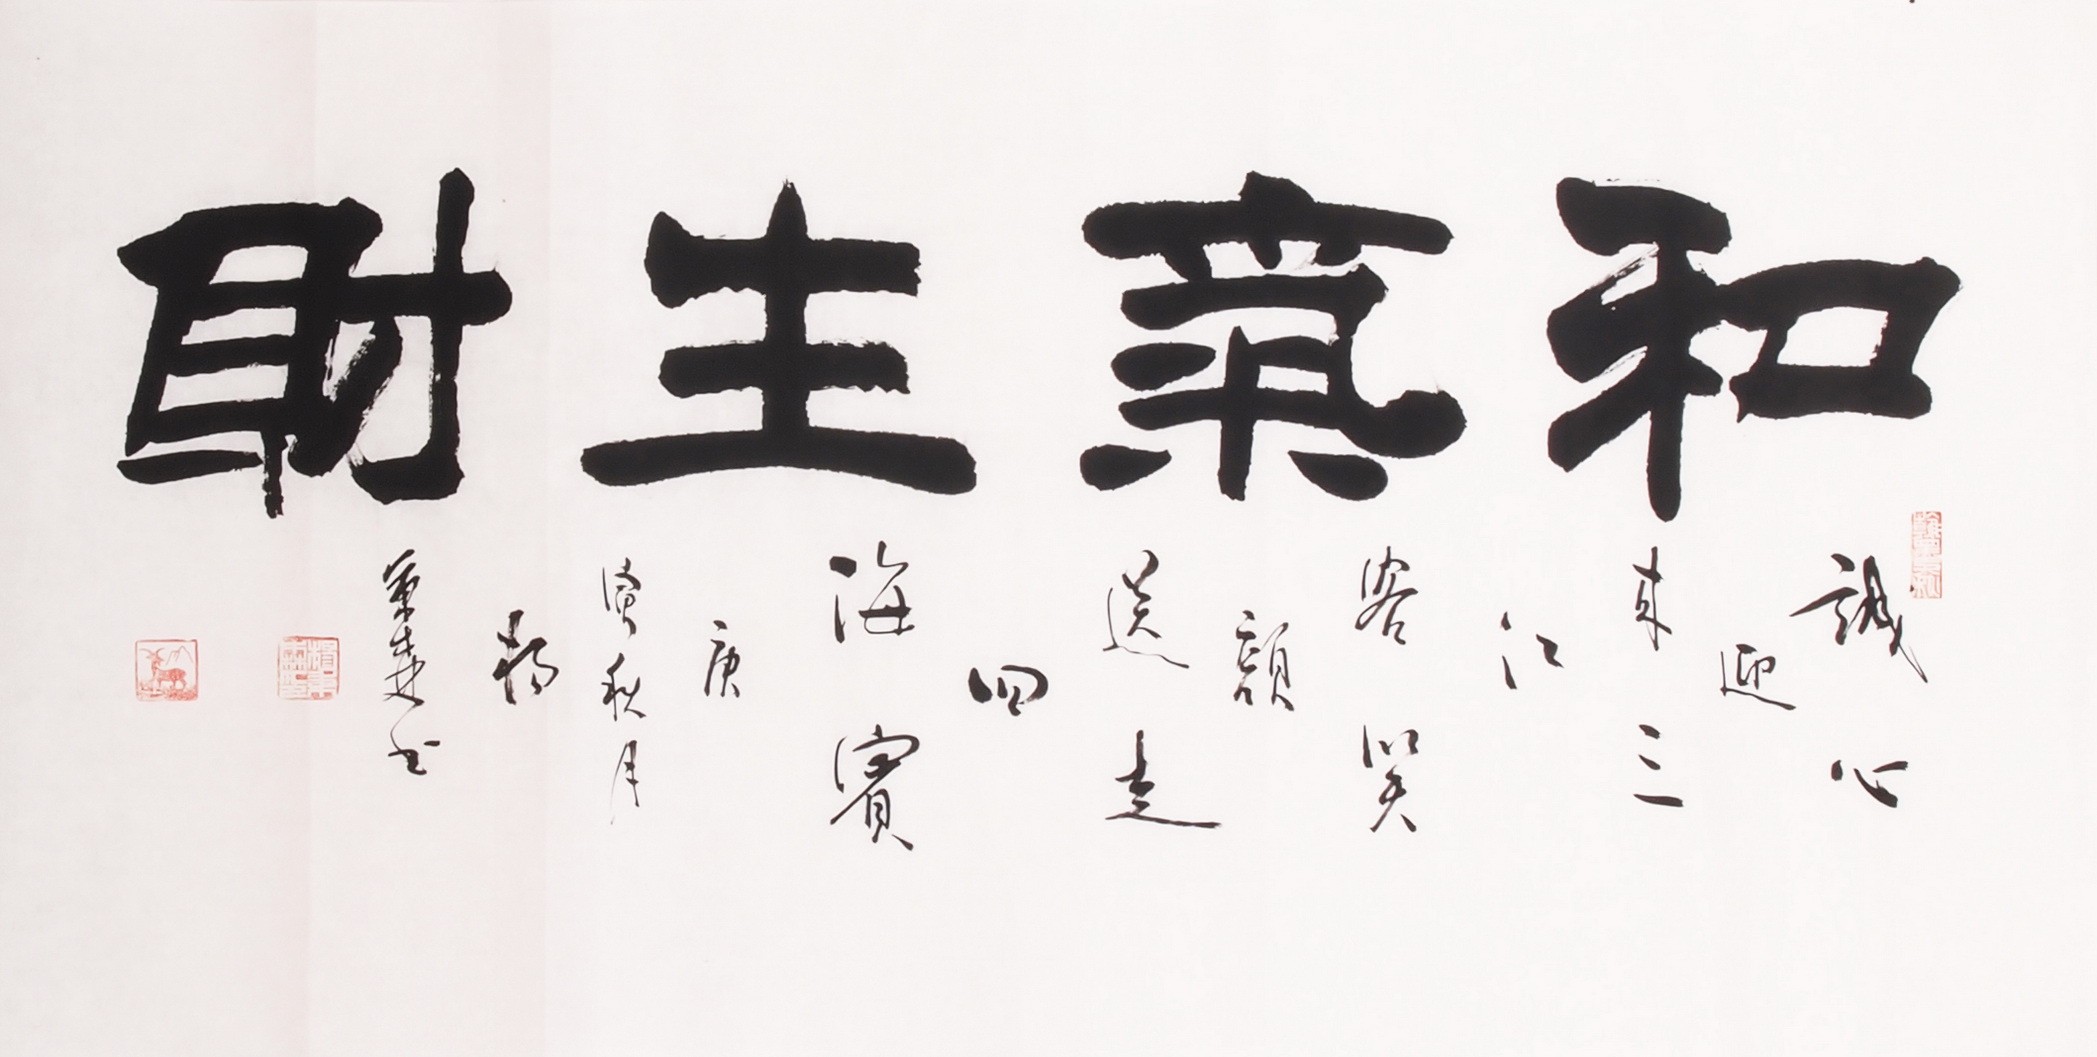 和氣生財
誠心
迎
来三
江
客笑
顔
送走
四
海賓
庚
寅秋月
楊
书